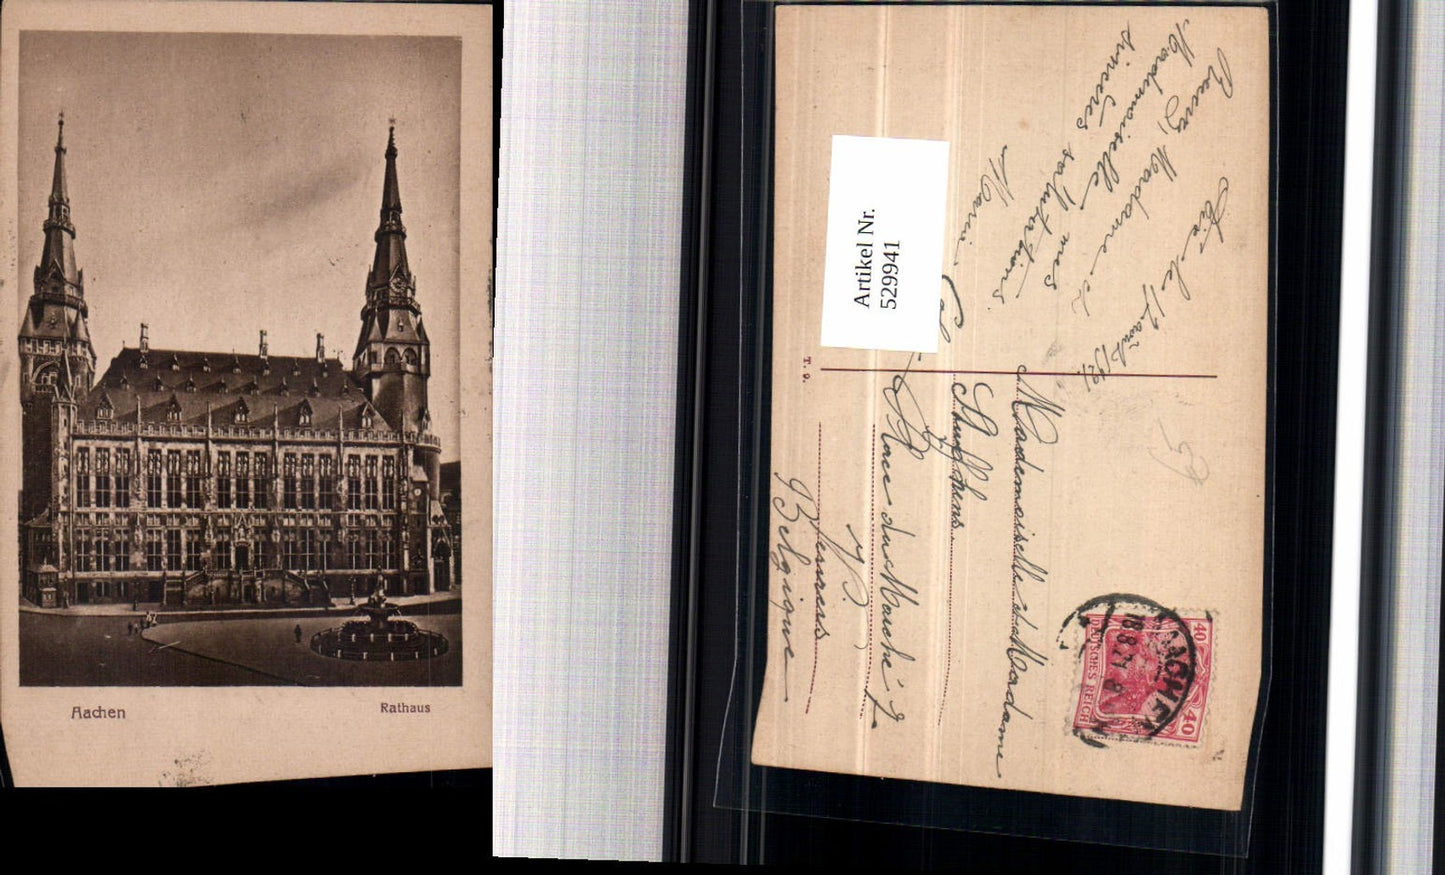 Aachen
Rathaus
Artikel Nr.
529941
le 17 août 1921
Madame et
Mademoiselle mes
sincères salutations
Marie
T. 9.
Mademoiselle et Madame
Place du Marché 7
Belgique
AACHEN
18.8.21
40
40
DEUTSCHES REICH